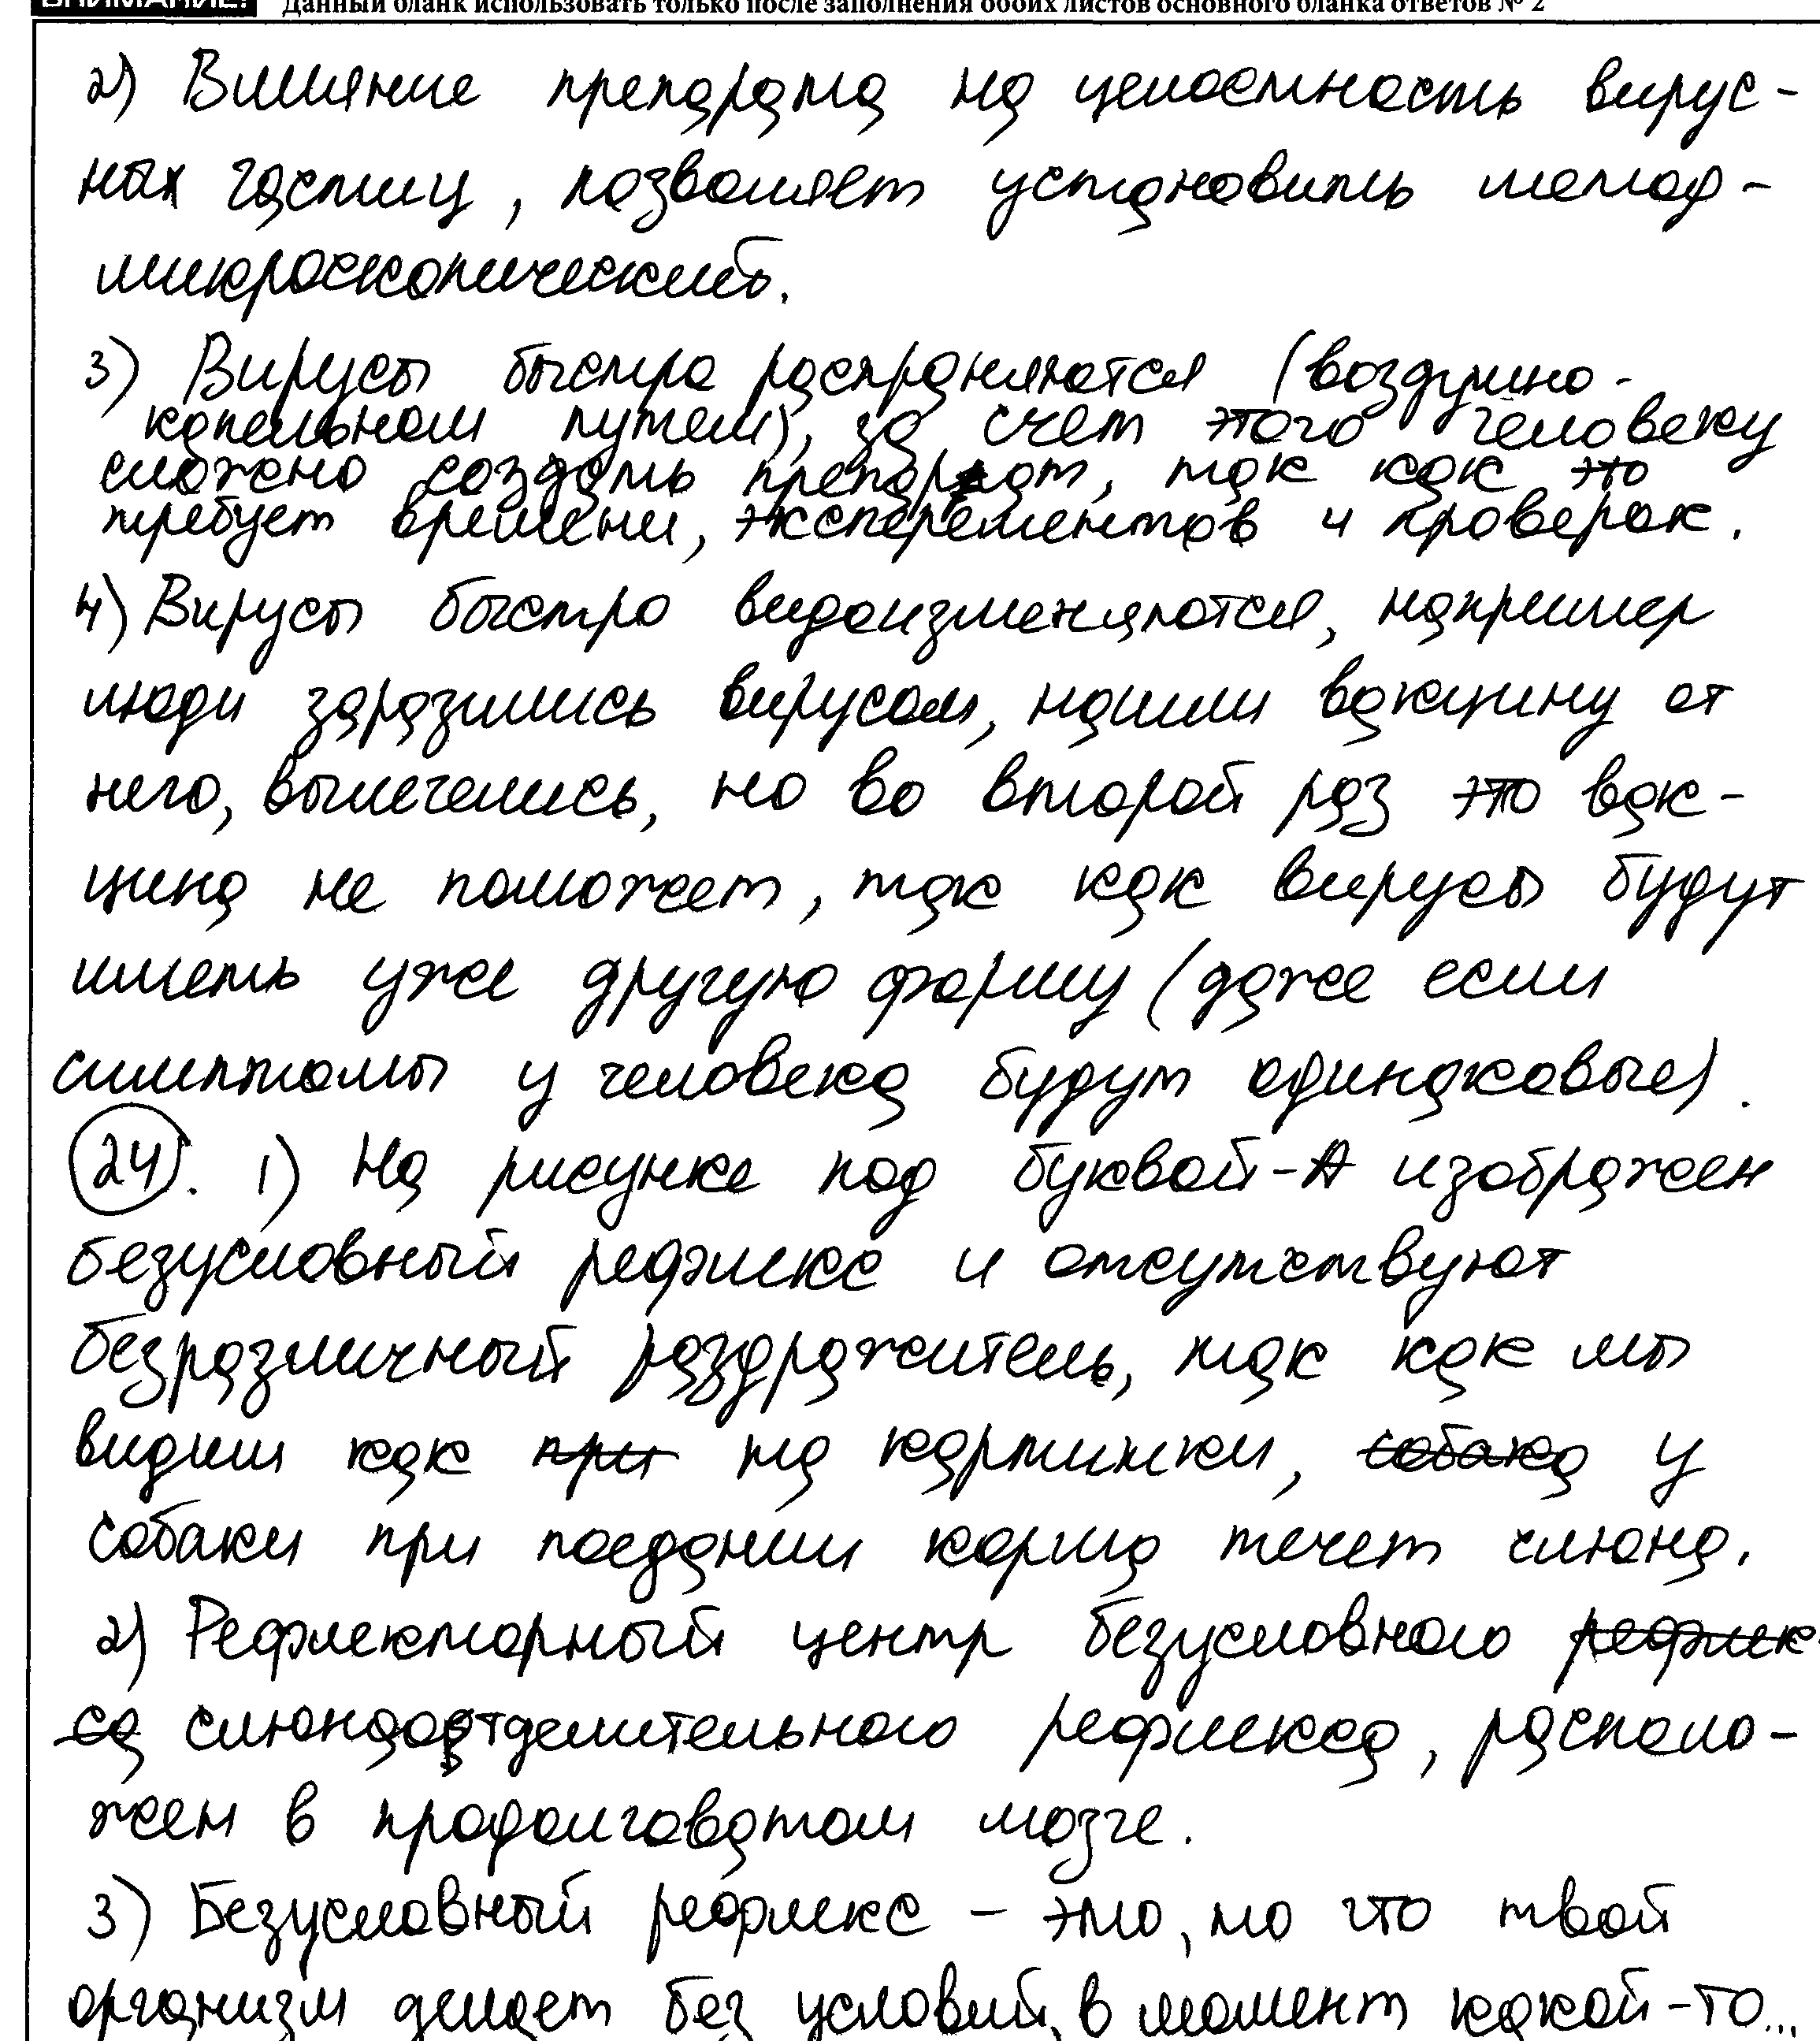 ВНИМАНИЕ! Данный бланк использовать только после заполнения обоих листов основного бланка ответов № 2
2) Влияние препарата на целостность вирус-
ных частиц, позволяет установить метод-
микроскопический.
3) Вирусы быстро распраняются (воздушно-
капельном путем), за счет этого человеку
сложно создать препарат, так как это
требует времени, эксперементов и проверок.
4) Вирусы быстро видоизменяются, например
люди заразились вирусом, нашли вакцину от
него, вылечелись, но во второй раз это вак-
цина не поможет, так как вирусы будут
иметь уже другую форму (даже если
симптомы у человека будут одинаковые).
24. 1) На рисунке под буквой-А изображен
безусловный рефлекс и отсутствуют
безразличный раздражитель, так как мы
видим как при на картинки, собака у
собаки при поедании корма течет слюна.
2) Рефлекторный центр безусловного рефлек-
са слюнаотделительного рефлекса, располо-
жен в продолговатом мозге.
3) Безусловный рефлекс - это, то что твой
организм делает без условий, в момент какой-то...